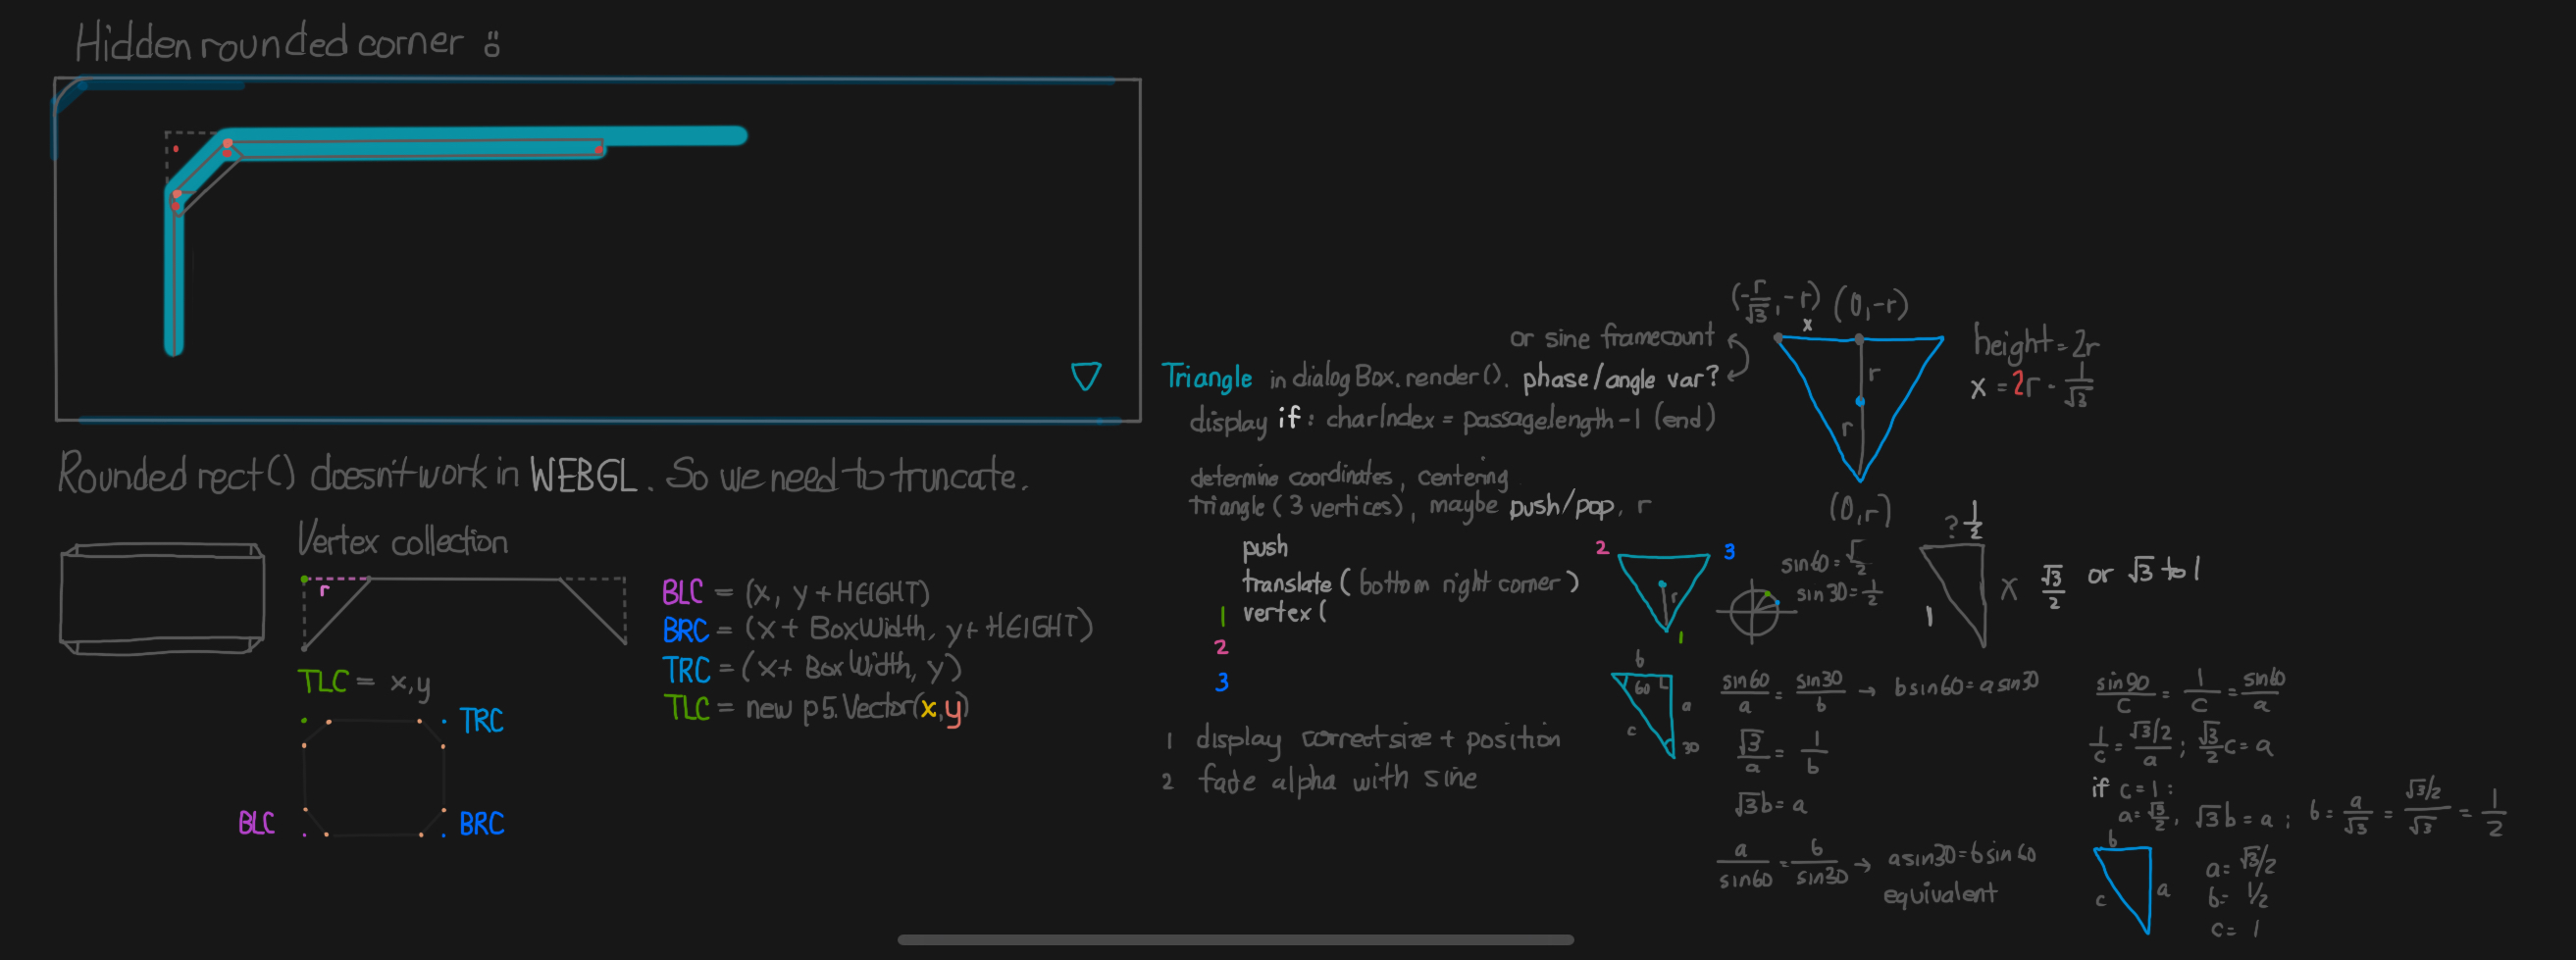 Hidden rounded corner :
Rounded rect() doesn't work in WEBGL. So we need to truncate.
Vertex collection
r
TLC = x,y
TRC
BLC
BRC
BLC = (x, y + HEIGHT)
BRC = (x + BoxWidth, y + HEIGHT)
TRC = (x + BoxWidth, y)
TLC = new p5.Vector(x,y)
or sine framecount
Triangle in dialogBox.render(). phase/angle var?
display if: charIndex = passage.length - 1 (end)
determine coordinates, centering
triangle (3 vertices), maybe push/pop, r
push
translate (bottom right corner)
1 vertex (
2
3
1 display correct size + position
2 fade alpha with sine
(-r/√3, -r) (0, -r)
x
r
r
(0, r)
height = 2r
x = 2r - 1/√3
2
3
r
1
sin60 = √/2
sin30 = 1/2
? 1/2
1
x √3/2 or √3 to 1
b
60
a
c
30
sin60/a = sin30/b → b sin60 = a sin30
√3/a = 1/b
√3b = a
a/sin60 = b/sin30 → a sin30 = b sin60
equivalent
sin90/c = 1/c = sin60/a
1/c = √3/2/a ; √3/2 c = a
if c = 1 :
a = √3/2, √3b = a ; b = a/√3 = √3/2/√3 = 1/2
b
a
c
a = √3/2
b = 1/2
c = 1